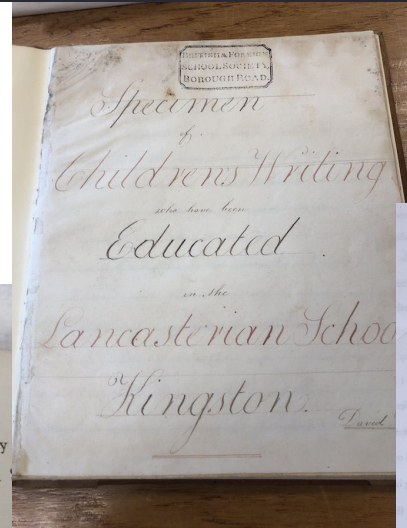 BRITISH & FOREIGN
SCHOOL SOCIETY,
BOROUGH ROAD.
Specimen
of
Childrens Writing
who have been
Educated
in the
Lancasterian Schoo
Kingston.
David
y